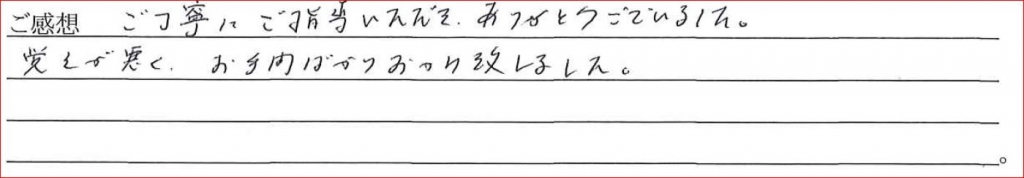 ご感想 ご丁寧にご指導いただき、ありがとうございました。
覚えが悪く、お手間ばかりおかけ致しました。
。